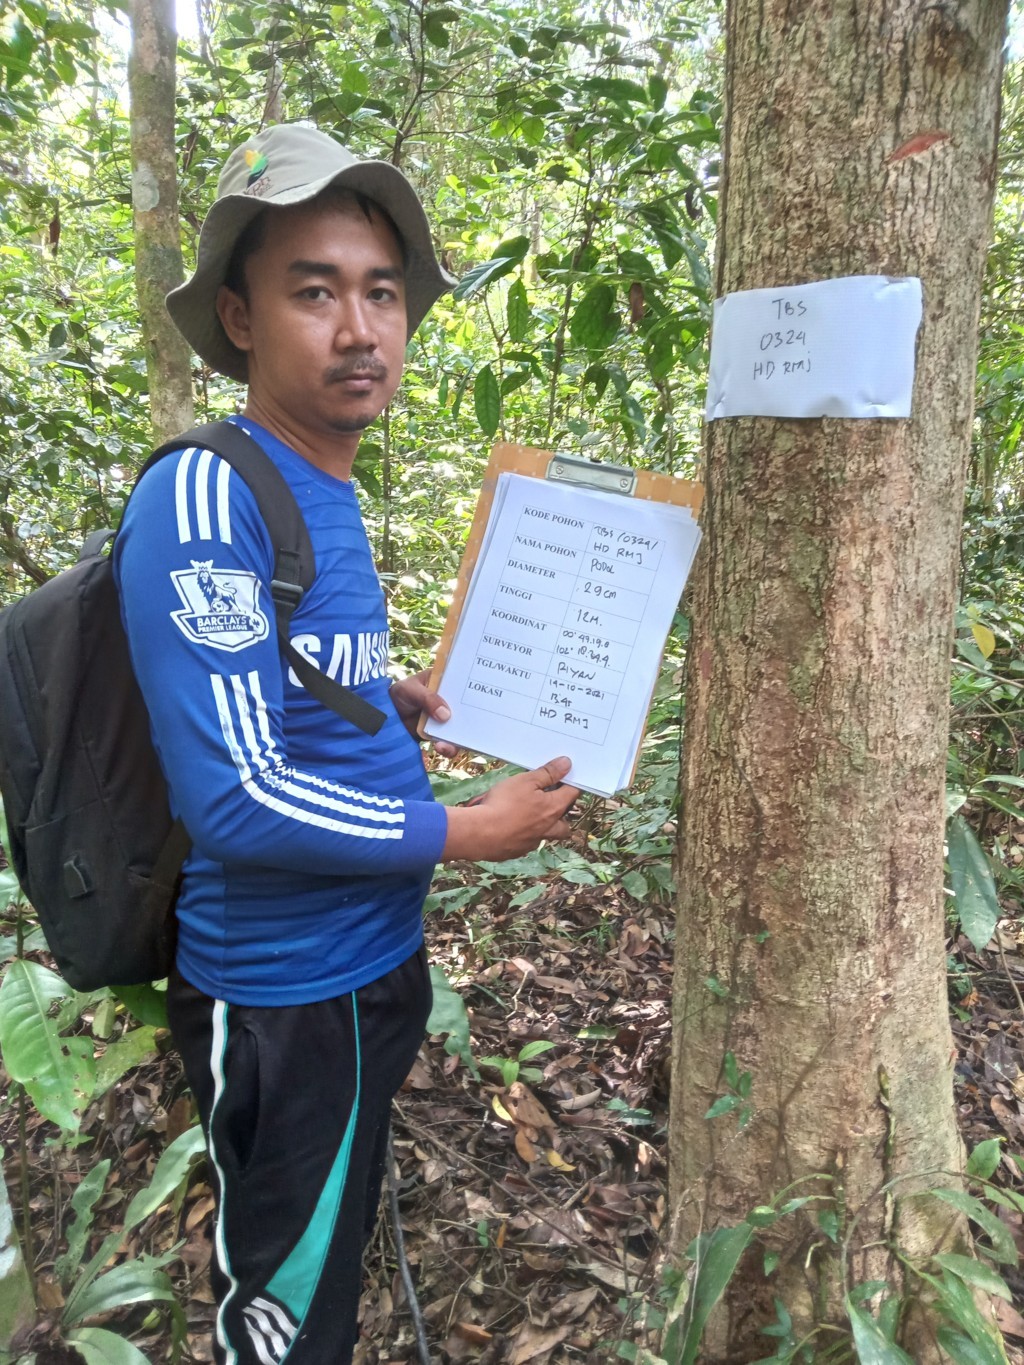 TBS
0324
HD RMJ
KODE POHON TBS/0324/ HD RMJ
NAMA POHON PODOL
DIAMETER : 29 cm
TINGGI : 12 M.
KOORDINAT 00° 49.19.0
102° 18.34.9.
SURVEYOR RIYAN
TGL/WAKTU 14-10-2021
LOKASI HD RMJ
BARCLAYS
PREMIER LEAGUE
SAMSU